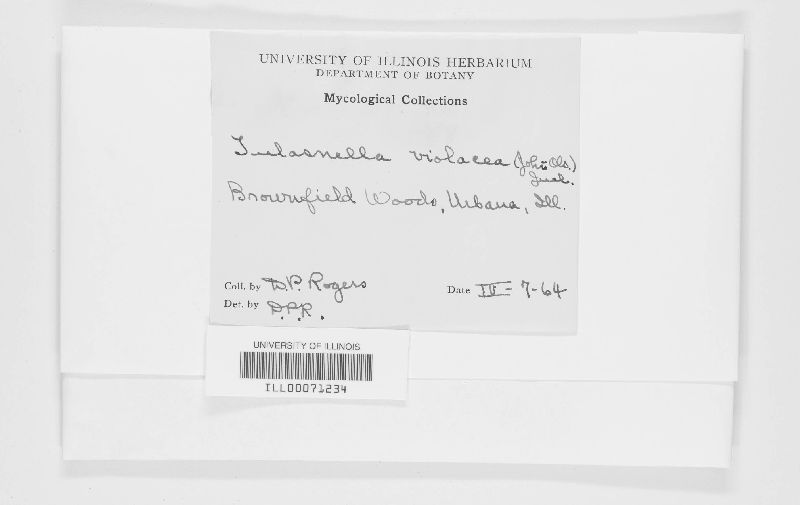 UNIVERSITY OF ILLINOIS HERBARIUM
DEPARTMENT OF BOTANY
Mycological Collections
Tulasnella violacea (Joh. Ols.)
Juel.
Brownfield Woods, Urbana, Ill.
Coll. by D.P. Rogers
Date IV-7-64
Det. by D.P.R.
UNIVERSITY OF ILLINOIS
ILL00071234